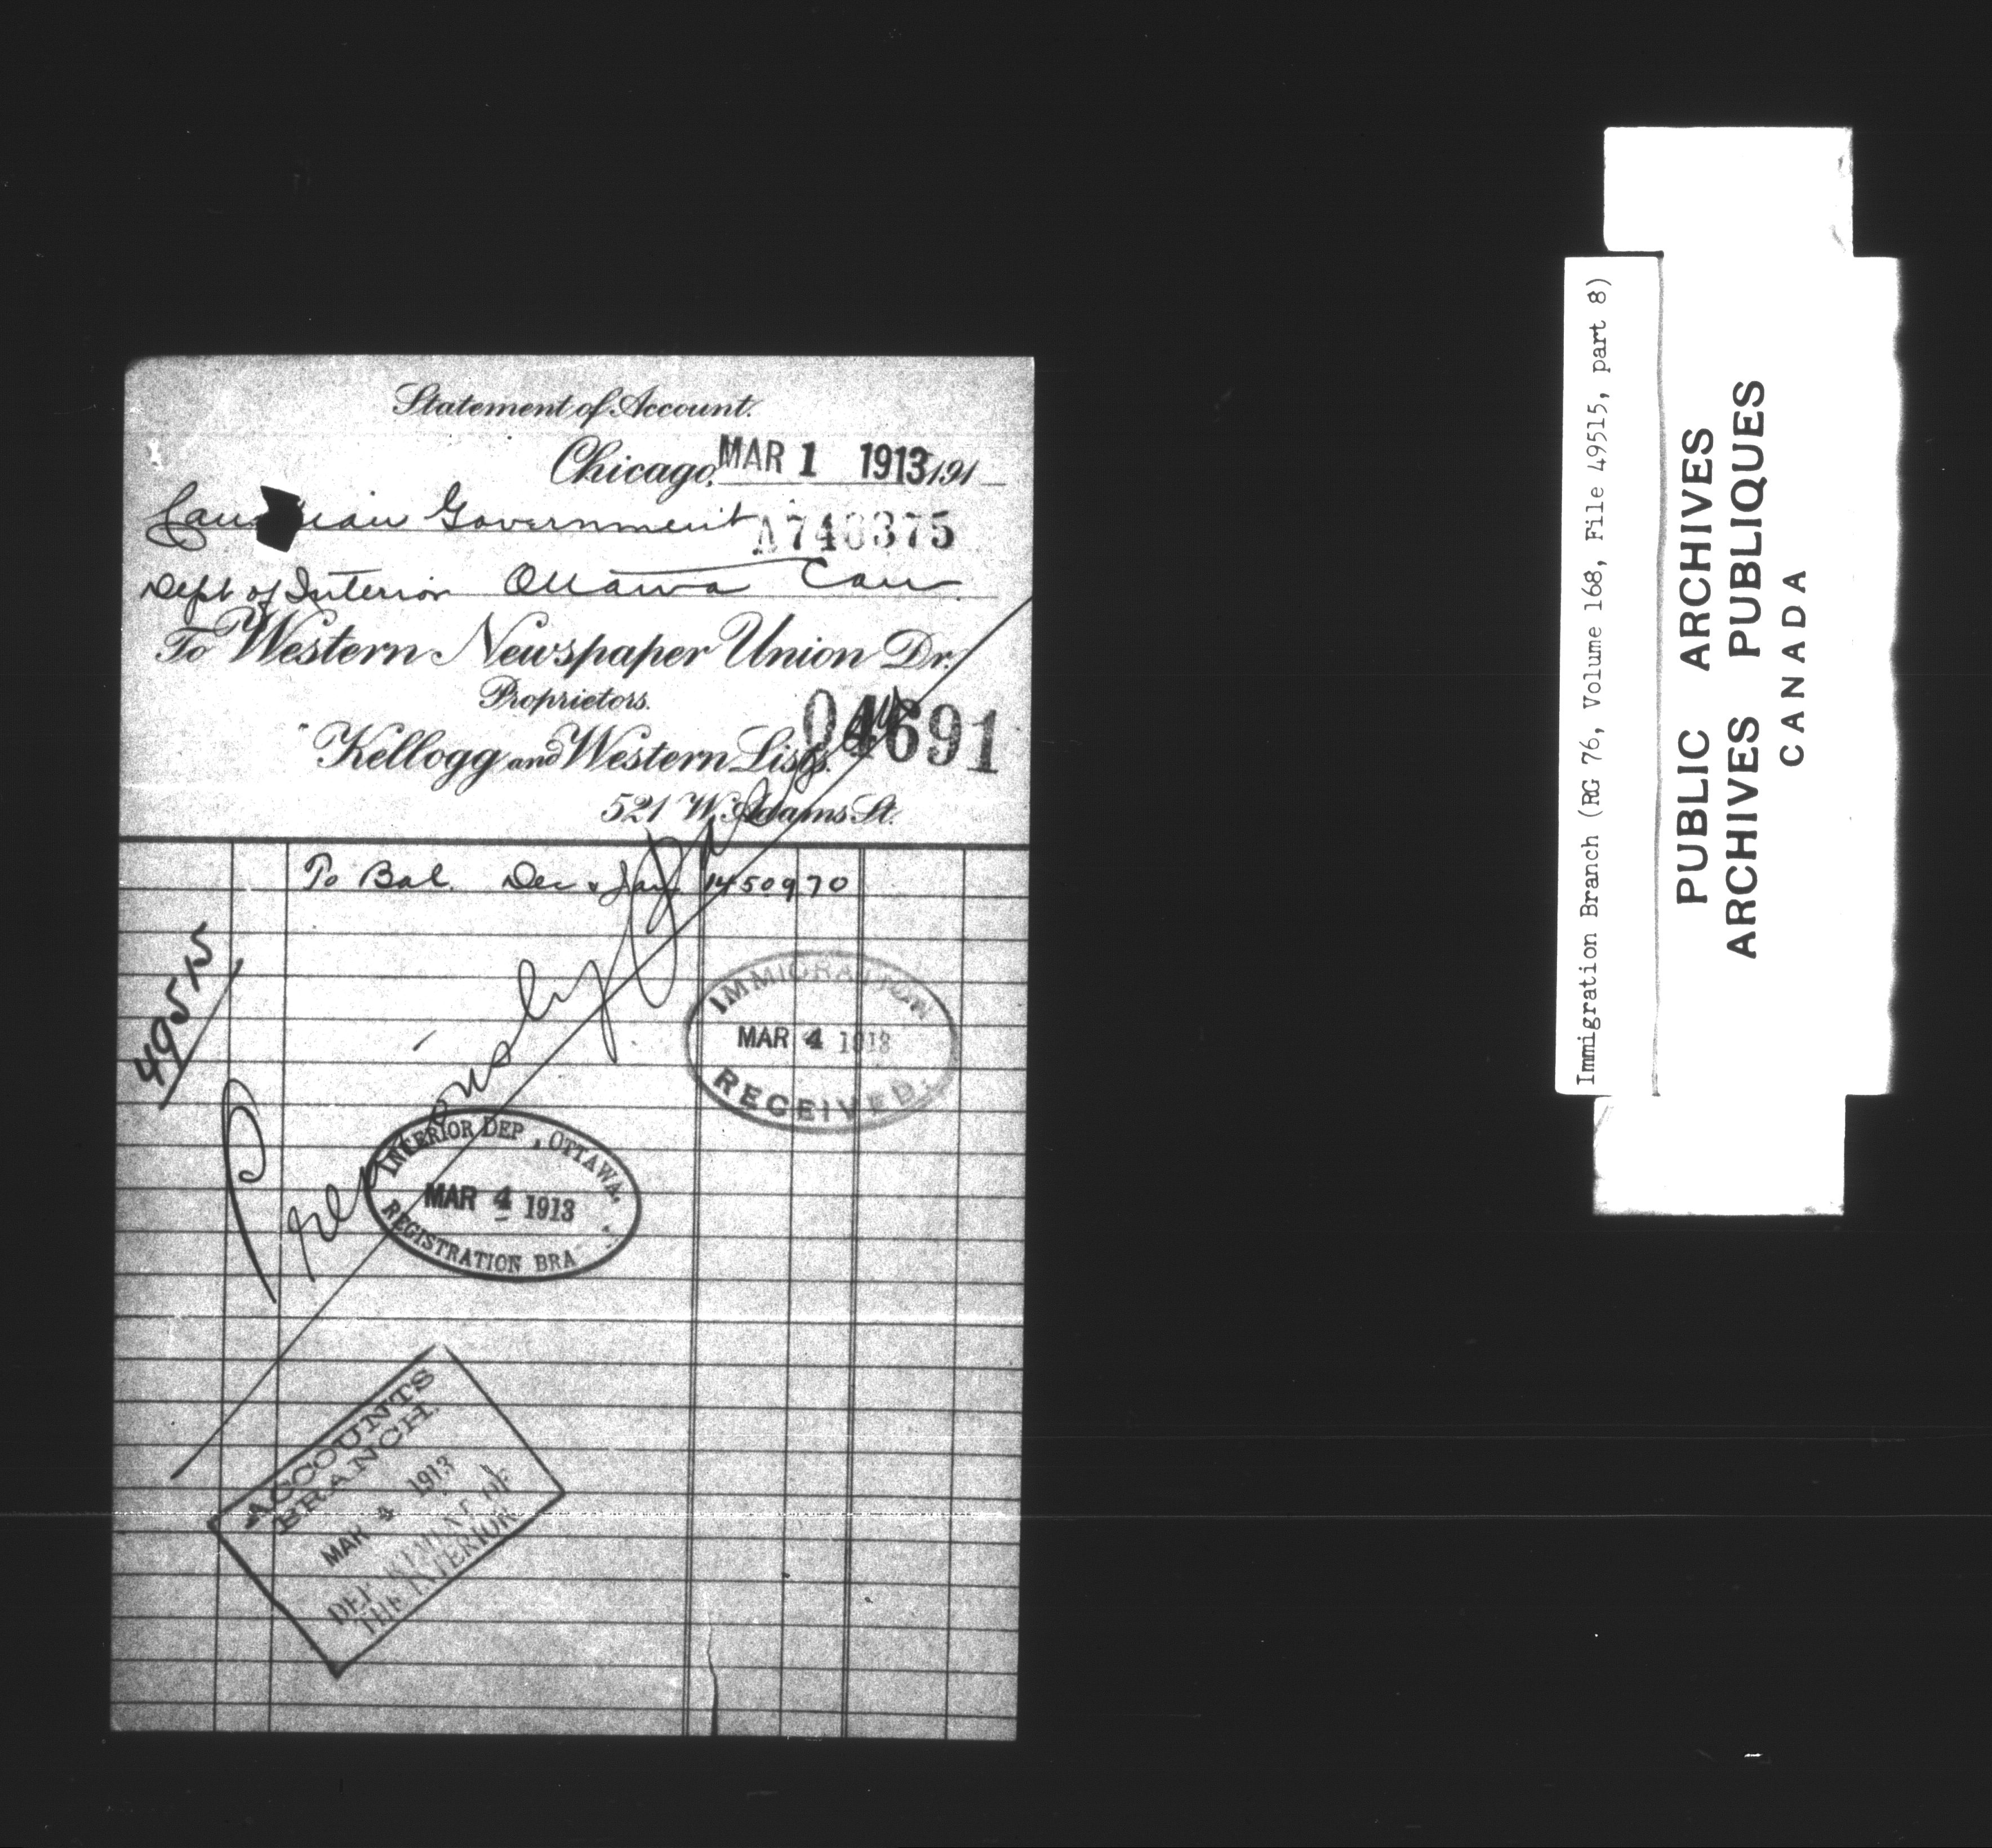 Statement of Account.
Chicago, MAR 1 1913 191
Canadian Government A740375
Dept of Interior Ottawa Can
To Western Newspaper Union Dr.
Proprietors.
04691
Kellogg and Western Lists.
521 W. Adams St.
To Bal. Dec & Jan 14509 70
49515
Previously
IMMIGRATION
MAR 4 1913
RECEIVED.
INTERIOR DEP , OTTAWA.
MAR 4 1913
REGISTRATION BRA
ACCOUNTS
BRANCH.
MAR 4 1913
DEPARTMENT OF
THE INTERIOR
Immigration Branch (RG 76, Volume 168, File 49515, part 8)
PUBLIC ARCHIVES
ARCHIVES PUBLIQUES
CANADA